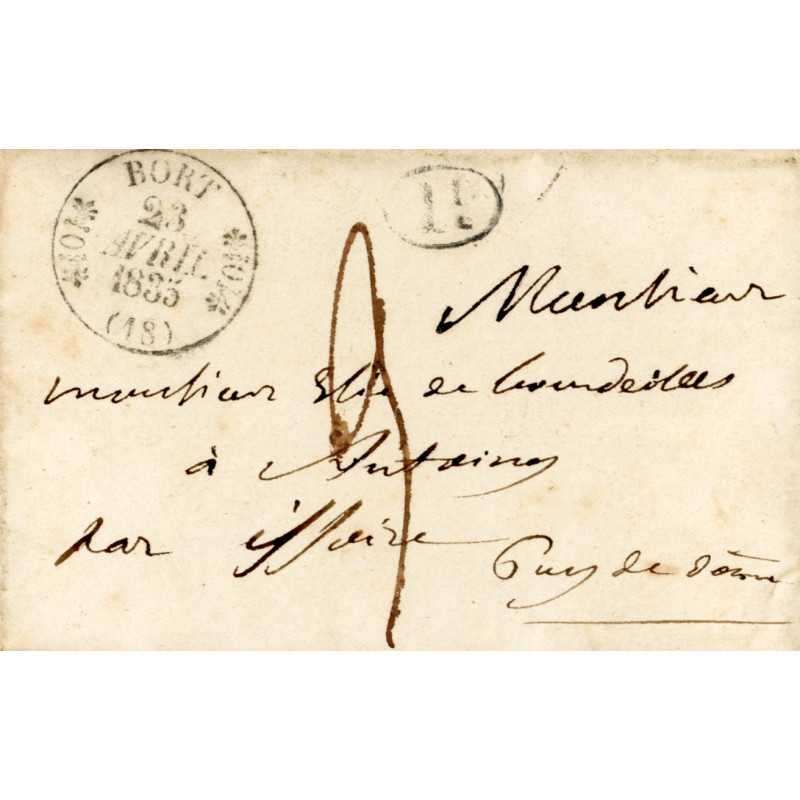 BORT
23
AVRIL
1835
(18)
1D
Monsieur
monsieur Elie de bourdeilles
à Antoing
par issoire
Puy de dôme